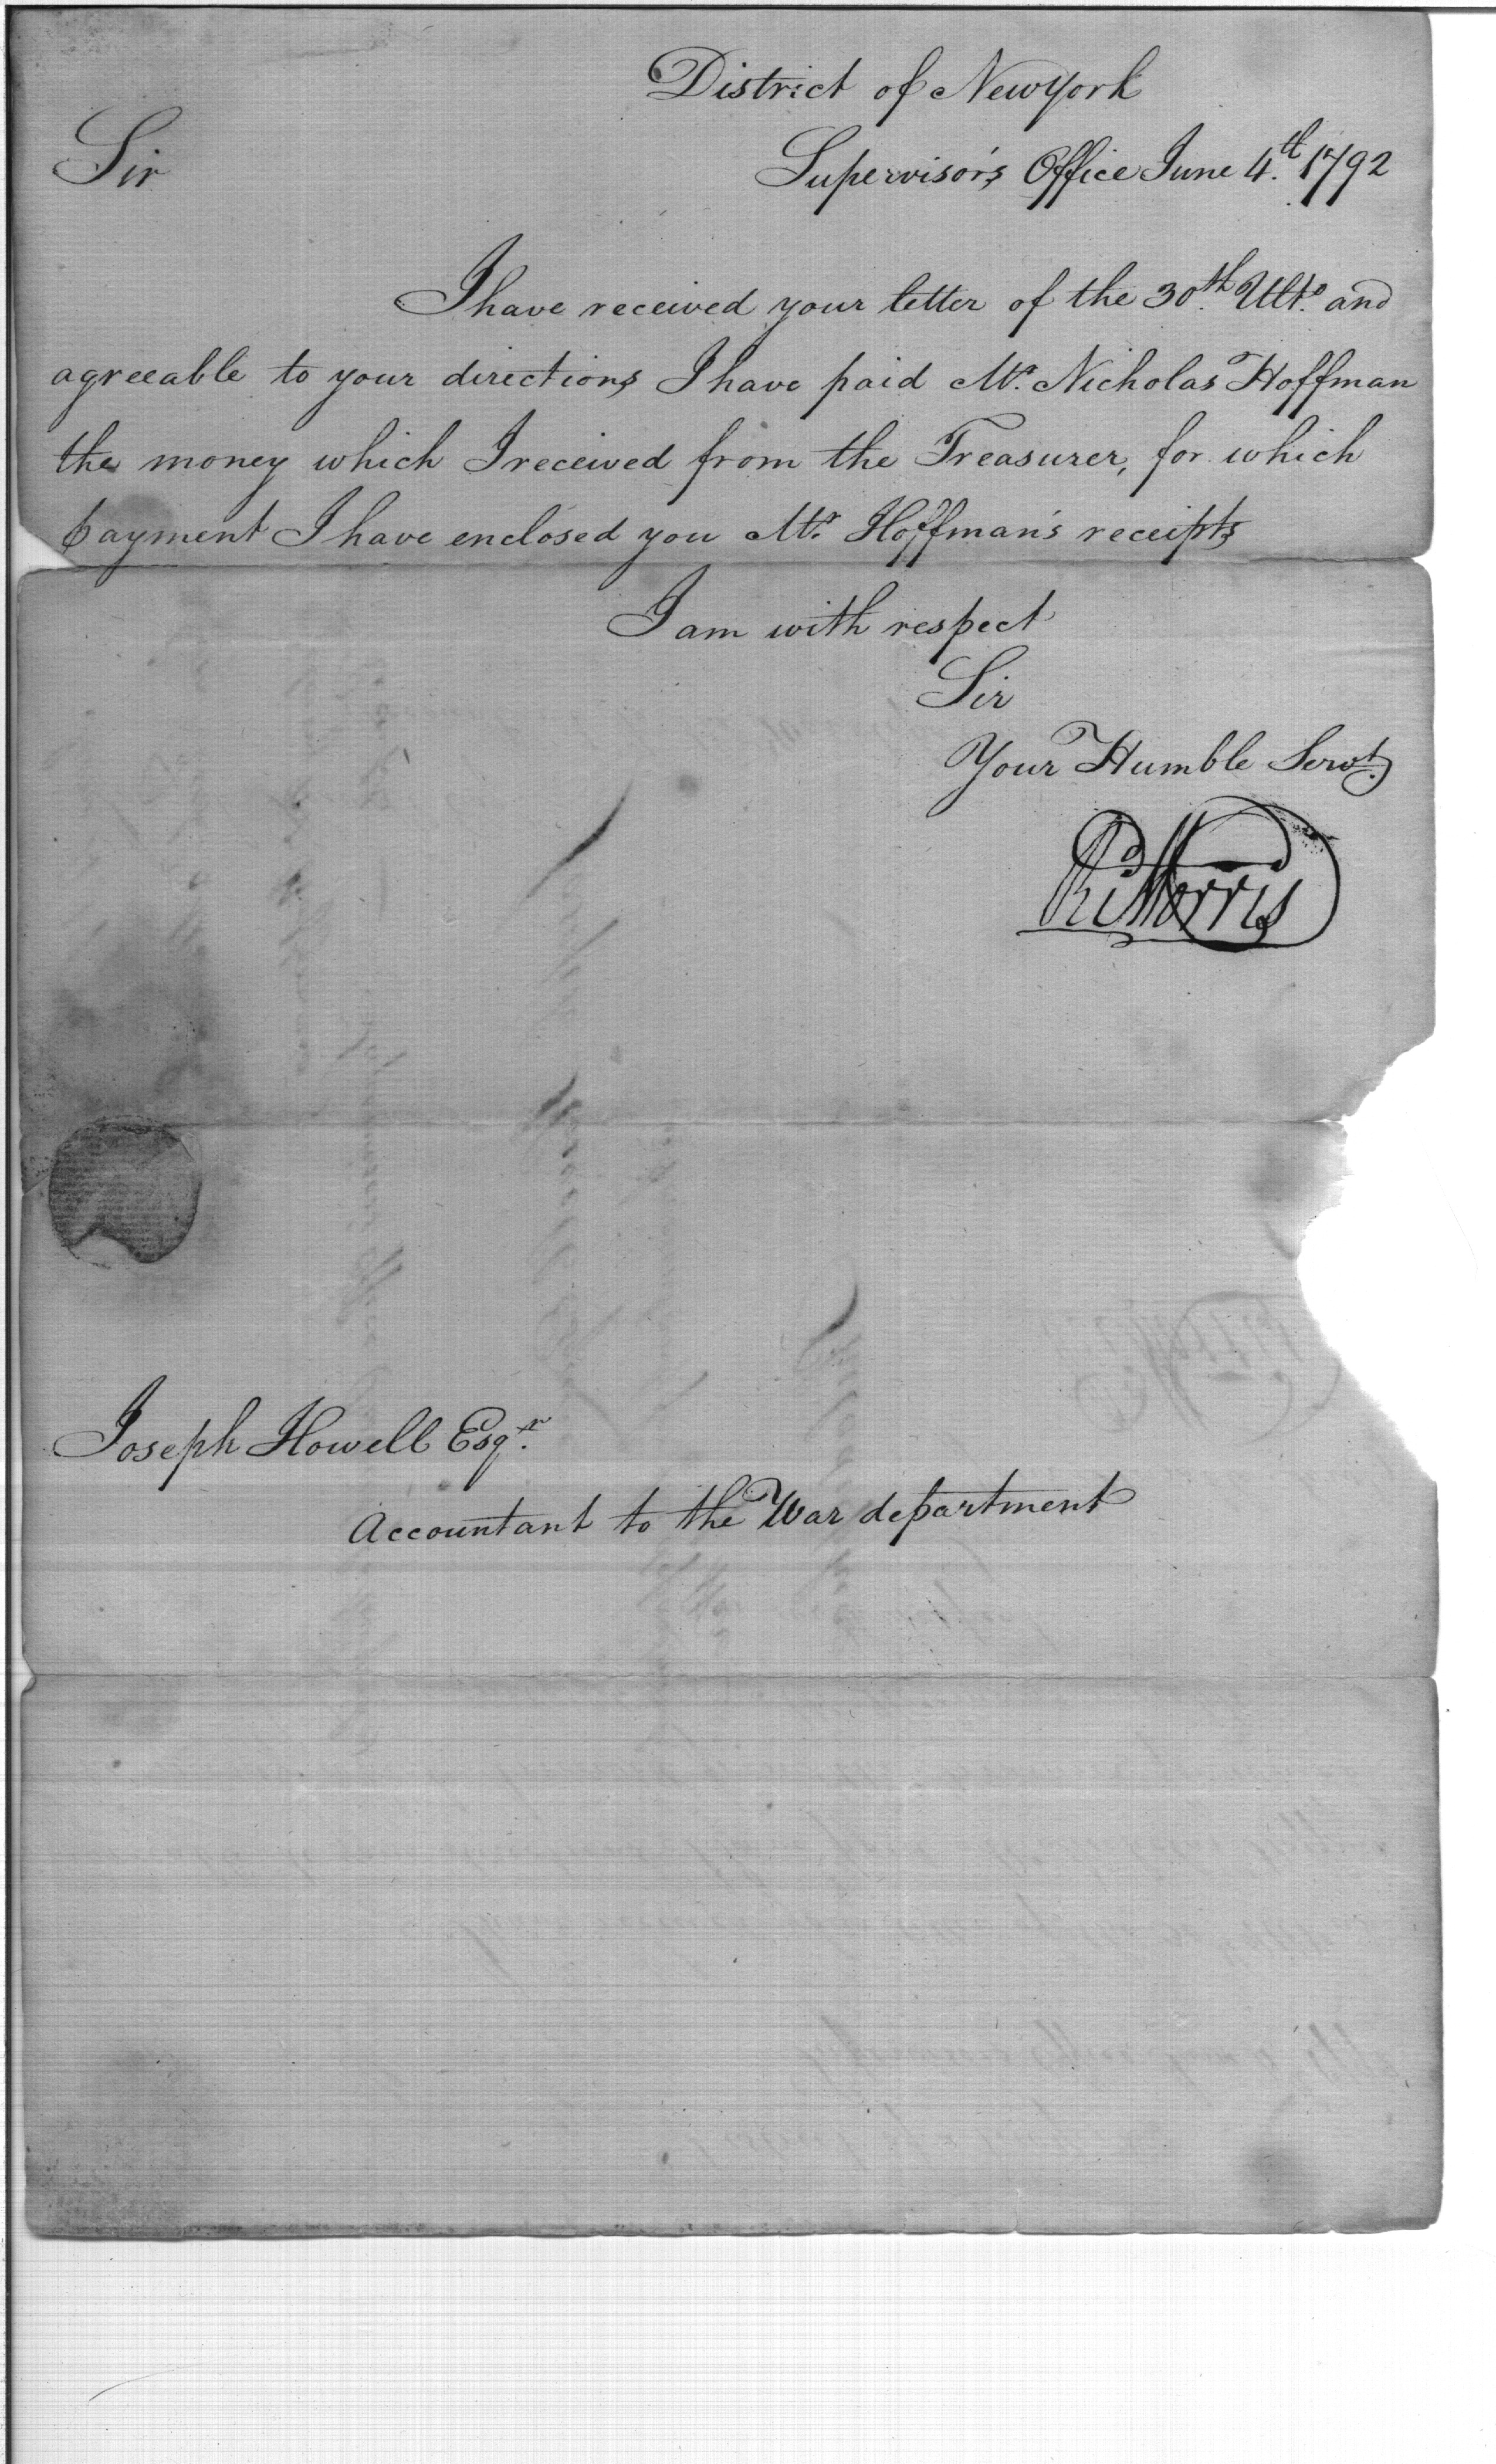 District of New York
Sir
Supervisor's Office June 4.th 1792
I have received your letter of the 30.th Ult.o and
agreeable to your directions I have paid Mr. Nicholas Hoffman
the money which I received from the Treasurer, for which
payment I have enclosed you Mr. Hoffman's receipts
I am with respect
Sir
Your Humble Servt.
Rd Morris
Joseph Howell Esqr.
Accountant to the War department